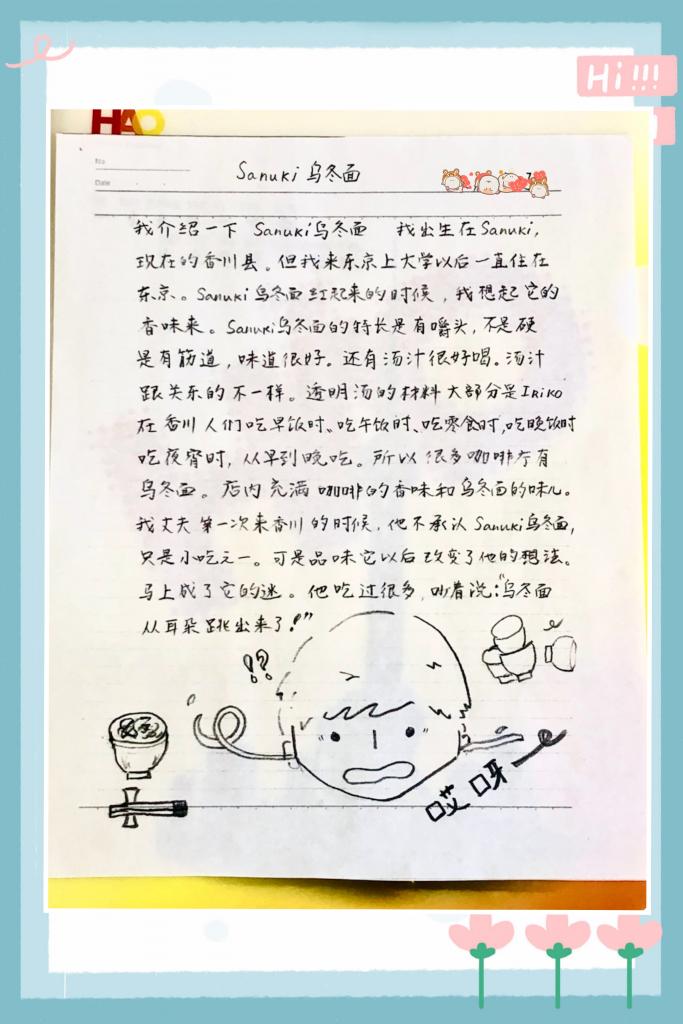 Hi!!!
HAO
No
Date
Sanuki 乌冬面
7
我介绍一下 Sanuki乌冬面 我出生在Sanuki,
现在的香川县。但我来东京上大学以后一直住在
东京。Sanuki乌冬面红起来的时候，我想起它的
香味来。Sanuki乌冬面的特长是有嚼头,不是硬
是有筋道，味道很好。还有汤汁很好喝。汤汁
跟关东的不一样。透明汤的材料大部分是IRIKO
在香川人们吃早饭时、吃午饭时、吃零食时,吃晚饭时
吃夜宵时，从早到晚吃。所以很多咖啡厅有
乌冬面。店内充满咖啡的香味和乌冬面的味儿。
我丈夫第一次来香川的时候，他不承认Sanuki乌冬面,
只是小吃元一。可是品味它以后改变了他的想法。
马上成了它的迷。他吃过很多,吵着说:"乌冬面
从耳朵跳出来了!"
!?
哎呀